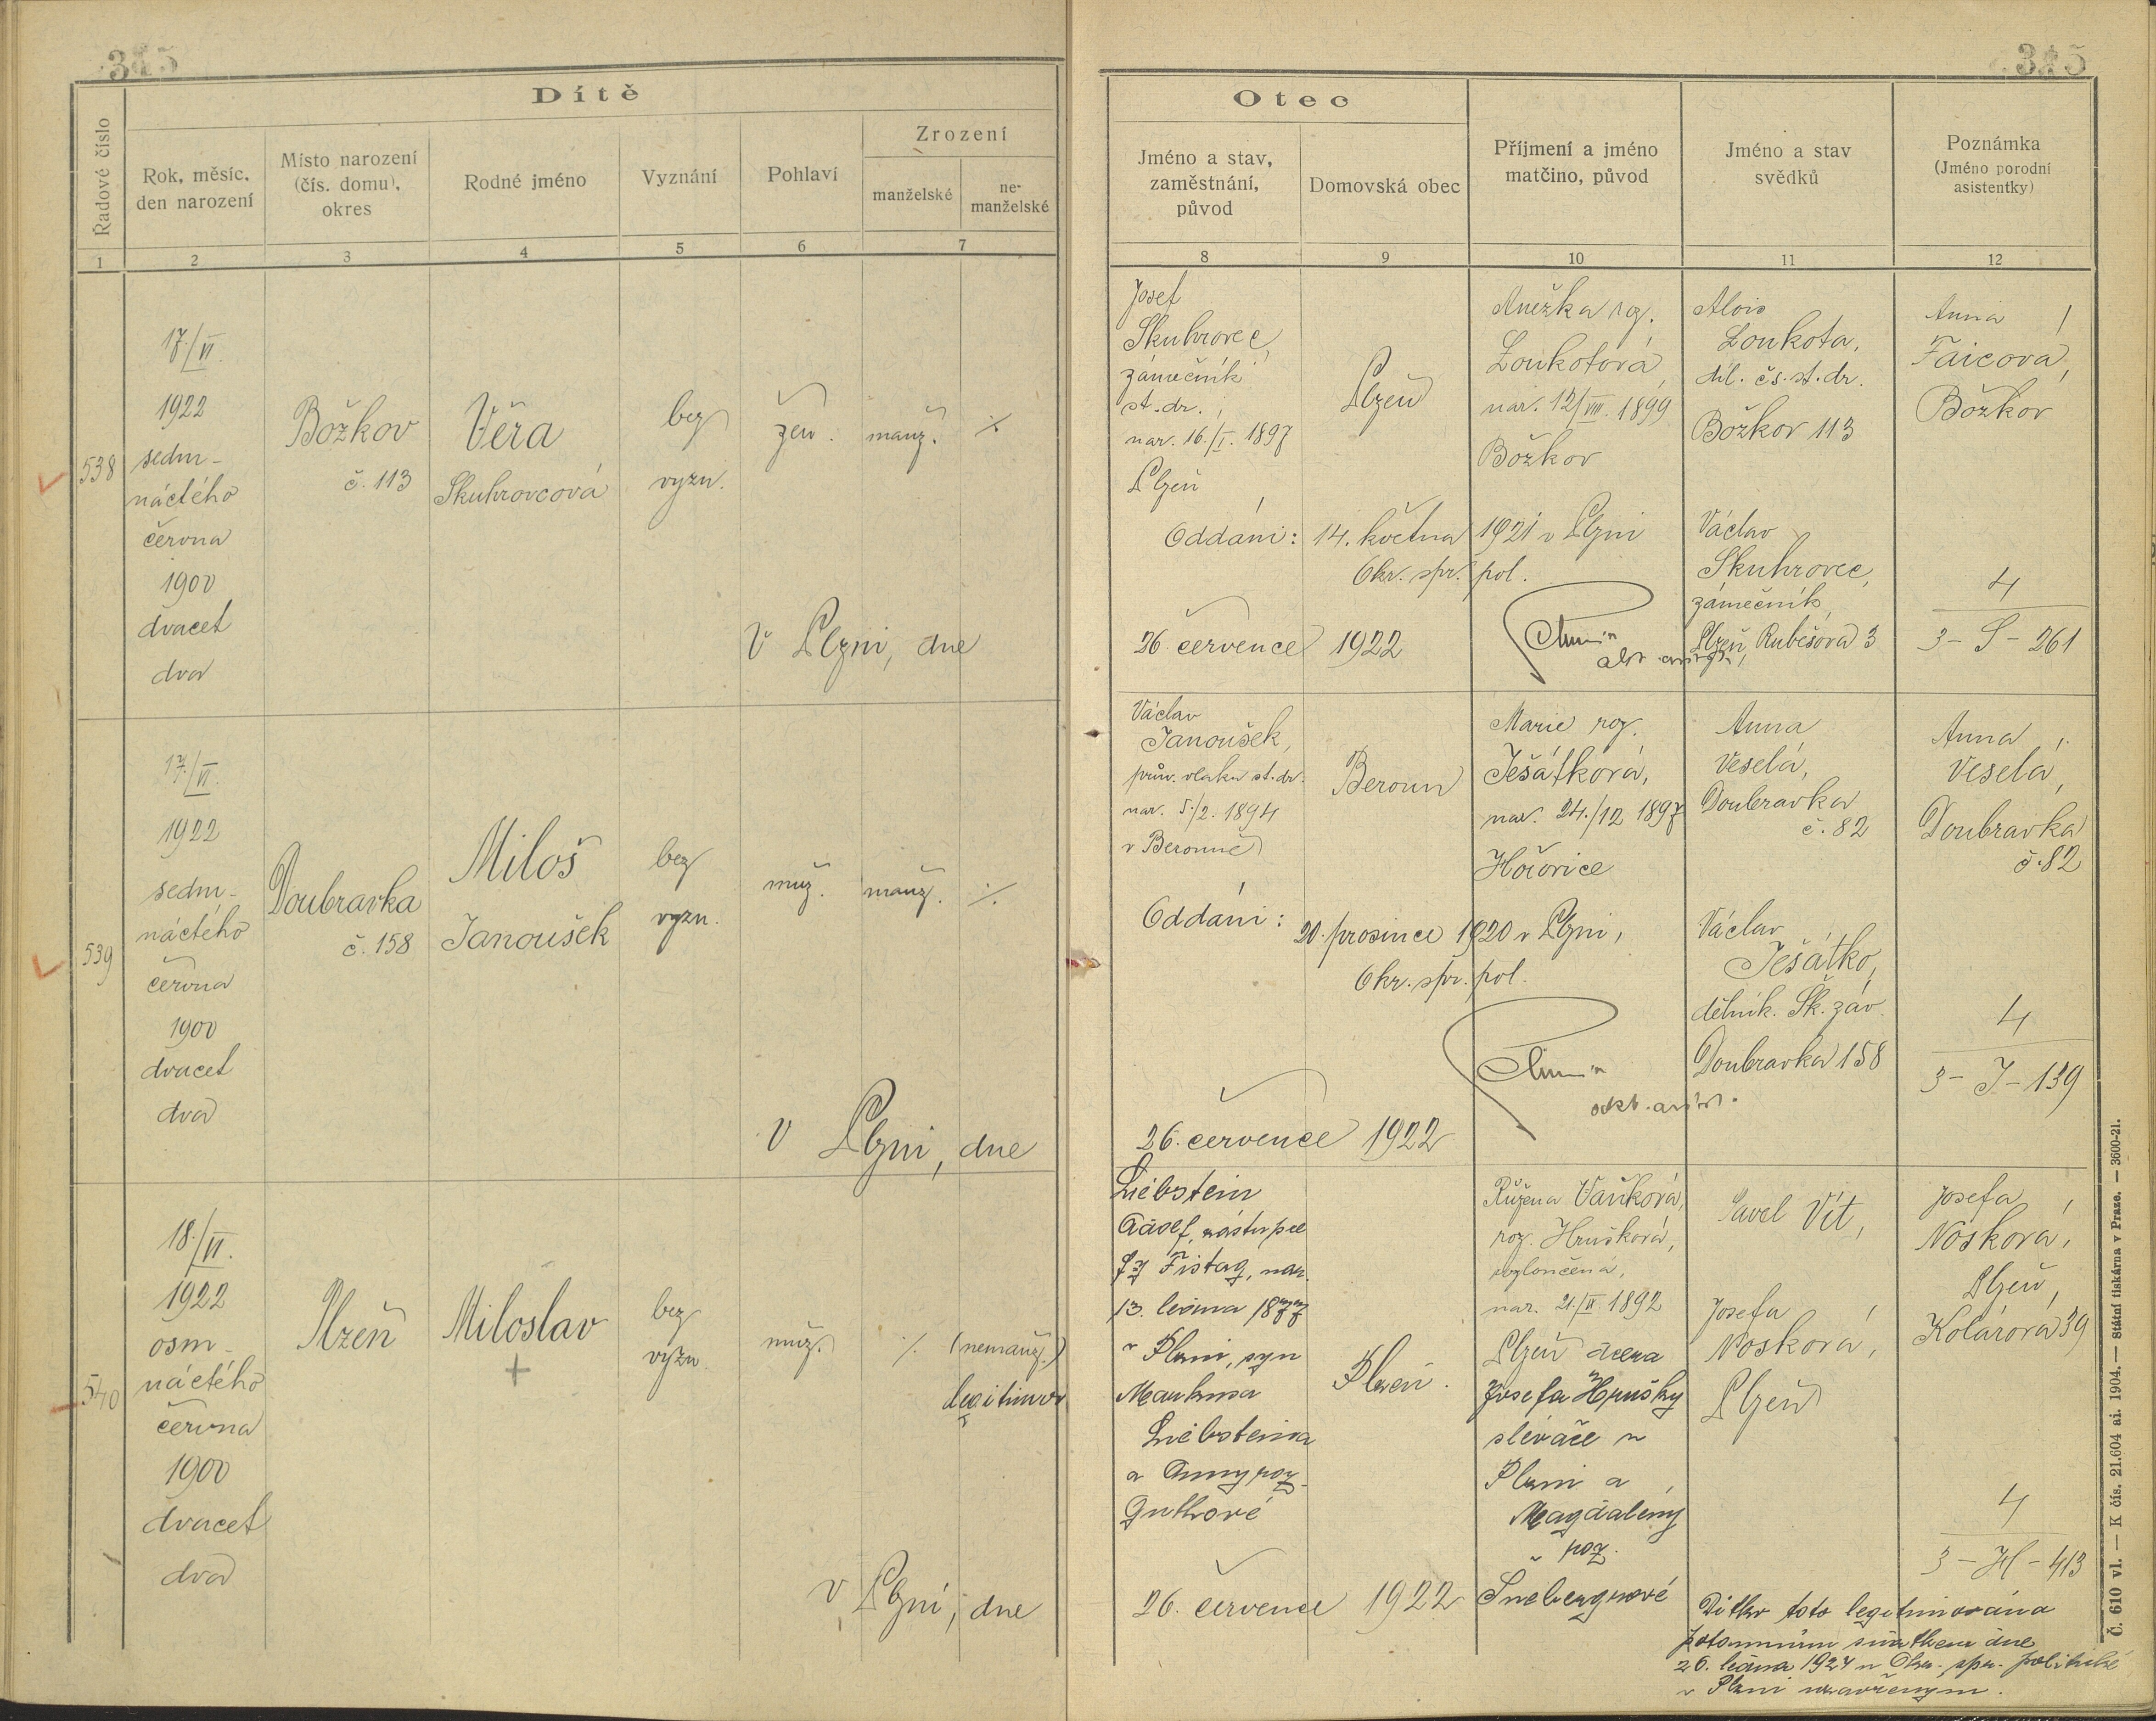 345
Dítě
Řadové číslo
Rok, měsíc, den narození
Místo narození (čís. domu), okres
Rodné jméno
Vyznání
Pohlaví
Zrození
manželské
ne-manželské
1
2
3
4
5
6
7
538
17./VI.
1922
sedm-
náctého
června
1900
dvacet
dva
Božkov
č. 113
Věra
Skuhrovcová
bez
vyzn.
žen.
manž.
V Plzni, dne
539
17./VI.
1922
sedm-
náctého
června
1900
dvacet
dva
Doubravka
č. 158
Miloš
Janoušek
bez
vyzn.
muž.
manž.
V Plzni, dne
540
18./VI.
1922
osm-
náctého
června
1900
dvacet
dva
Plzeň
Miloslav
+
bez
vyzn.
muž.
(nemanž.)
legitimov
V Plzni, dne
345
Otec
Jméno a stav, zaměstnání, původ
Domovská obec
Příjmení a jméno matčino, původ
Jméno a stav svědků
Poznámka
(Jméno porodní asistentky)
8
9
10
11
12
Josef
Skuhrovec,
zámečník
st. dr.,
nar. 16./I. 1897
Plzeň
Plzeň
Anežka roz.
Loukotová,
nar. 12/VIII. 1899
Božkov
Alois
Loukota,
děl. čs. st. dr.
Božkov 113
Anna
Faicová,
Božkov
Oddáni: 14. května 1921 v Plzni
Okr. spr. pol.
Václav
Skuhrovec,
zámečník,
Plzeň, Rubešova 3
4
3 - S - 261
26. července 1922
Václav
Janoušek,
prův. vlaku st. dr.
nar. 5./2. 1894
v Berouně
Beroun
Marie roz.
Ješátková,
nar. 24./12 1897
Hořovice
Anna
Veselá,
Doubravka
č. 82
Anna
Veselá,
Doubravka
č. 82
Oddáni: 20. prosince 1920 v Plzni,
Okr. spr. pol.
Václav
Ješátko,
dělník. Šk. záv.
Doubravka 158
4
3 - J - 139
26. července 1922
Liebstein
Adolf, zástupce
fy Fistag, nar.
13. ledna 1877
v Plzni, syn
Markusa
Liebsteina
a Anny roz.
Guthové
Plzeň.
Růžena Vaňková,
roz. Hrušková,
rozloučená,
nar. 21./II. 1892
Plzeň dcera
Josefa Hrušky
slévače v
Plzni a
Magdaleny
roz.
Šnebergrové
Pavel Vít,
Josefa
Nosková,
Plzeň
Josefa
Nosková,
Plzeň,
Kolárova 39
4
3 - H - 413
26. července 1922
Dítko toto legitimována
potomním sňatkem dne
26. ledna 1924 u Okr. spr. politické
v Plzni uzavřeným.
Č. 610 vl. — K čís. 21.604 ai. 1904. — Státní tiskárna v Praze. — 3600-21.